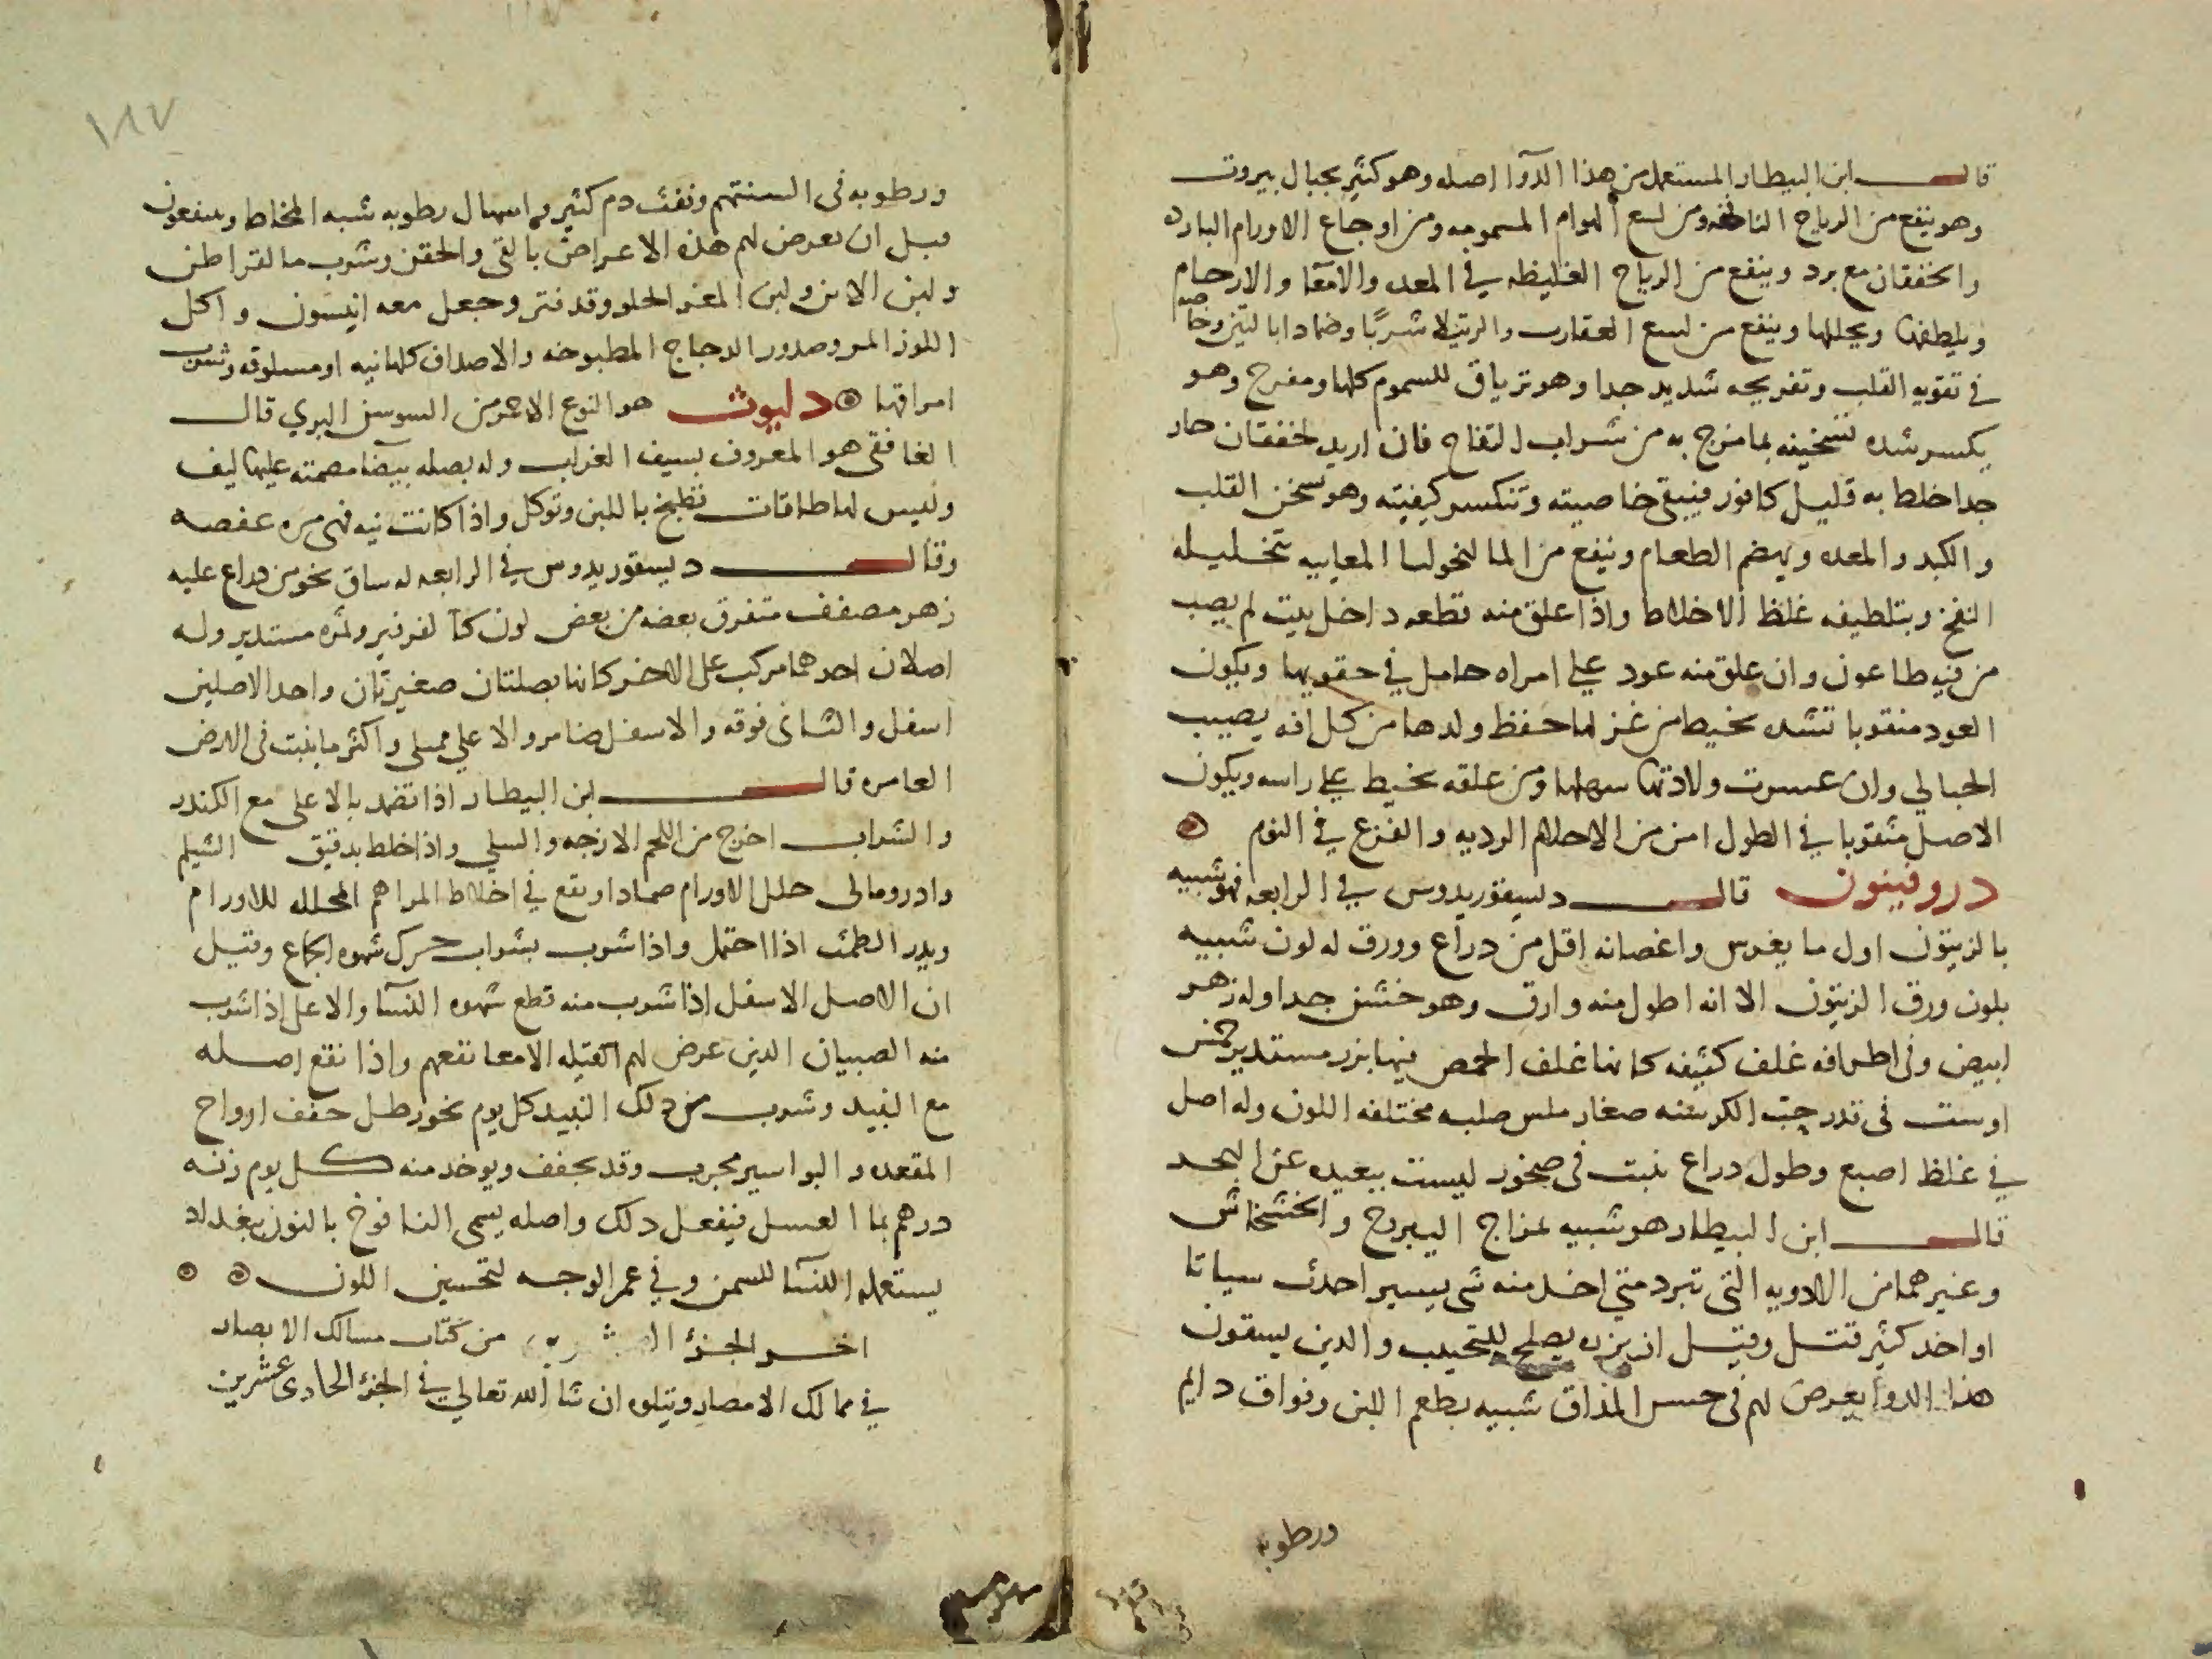 قال ابن البيطار المستعمل من هذا الدوا اصله وهو كثير بجبال بيروت
وهو ينفع من الرياح النافخه ومن لسع الهوام المسمومه ومن اوجاع الاورام البارده
والخفقان مع برد وينفع من الرياح الغليظه في المعده والامعا والارحام
ويلطفها ويحللها وينفع من لسع العقارب والرتيلا شربًا وضمادا بالتين وخاصته
في تقويه القلب وتفريحه شديد جدا وهو ترياق للسموم كلها ومفرح وهو
يكسر شده تسخينه بما مزج به من شراب التفاح فان اريد لخفقان حار
جدا خلط به قليل كافور فيبقى خاصيته وتنكسر كيفيته وهو يسخن القلب
والكبد والمعده ويهضم الطعام وينفع من المالنخوليا المعاييه بتحليله
النفخ وبتلطيفه غلظ الاخلاط واذا علق منه قطعه داخل بيت لم يصب
من فيه طاعون وان علق منه عود على امراه حامل في حقويها ويكون
العود منقوبا تشده بخيط من غزلها حفظ ولدها من كل افه يصيب
الحبالي وان عسرت ولادتها سهلها ومن علقه بخيط على راسه ويكون
الاصل مثقوبا في الطول امن من الاحلام الرديه والفزع في النوم
دروفينون قال ديسقوريدوس في الرابعه فهو شبيه
بالزيتون اول ما يغرس واغصانه اقل من دراع وورق له لون شبيه
بلون ورق الزيتون الا انه اطول منه وارق وهو خشن جدا وله زهر
ابيض وفي اطرافه غلف كثيفه كانها غلف الحمص فيها بزر مستدير خمس
اوست في تدر حب الكرسنه صغار ملس صلبه مختلفه اللون وله اصل
في غلظ اصبع وطول دراع ينبت في صخور ليست ببعيده عن البحر
قال ابن البيطار هو شبيه بمزاج اليبروح والخشخاش
وغيرهما من الادويه التي تبرد متى اخد منه شى يسير احدث سباتا
او اخد كثير قتل وقيل ان بزره يصلح للتحبيب والدين يسقون
هذا الدوا يعرض لهم في حس المذاق شبيه بطعم اللبن وفواق دايم
ورطوبه
١٨٧
ورطوبه في السنتهم ونفث دم كثير واسهال رطوبه شبه المخاط وينفعون
قبل ان يعرض لهم هذه الاعراض بالقى والحقن وشرب مالقراطن
ولبن الاتن ولبن المعز الحلو وقد فتر وجعل معه انيسون واكل
اللوز المر وصدور الدجاج المطبوخه والاصداف كلها نيه او مسلوقه وشرب
امراقها دلبوث هو النوع الاحمر من السوسن البري قال
الغافقى هو المعروف بسيف الغراب وله بصله بيضا مصمته عليها ليف
وليس لها طاقات تطبخ باللبن وتوكل واذا كانت نيه فهي مره عفصه
وقال ديسقوريدوس في الرابعه له ساق نحو من دراع عليه
زهر مصفف متفرق بعضه من بعض لون كالفرفير وثمره مستدير وله
اصلان احدهما مركب على الاخر كانها بصلتان صغيرتان واحد الاصلين
اسفل والثاني فوقه والاسفل ضامر والاعلي ممتلى واكثر ما ينبت في الارض
العامره قال ابن البيطار اذا تضمد بالاعلى مع الكندر
والشراب اخرج من اللحم الازجه والسلي واذا خلط بدقيق الشيلم
وادرومالى حلل الاورام ضمادا ويقع في اخلاط المراهم المحلله للاورام
ويدر الطمث اذا احتمل واذا شرب بشراب حرك شهوه الجماع وقيل
ان الاصل الاسفل اذا شرب منه قطع شهوه النسا والاعلى اذا شرب
منه الصبيان الدين عرض لهم القيله الامعا نفعهم واذا نقع اصله
مع النبيد وشرب من دلك النبيد كل يوم نحو رطل جفف ارواح
المقعده والبواسير مجرب وقد يجفف ويوخد منه كل يوم زنه
درهم بما العسل فيفعل دلك واصله يسمى النافوخ بالنون ببغداد
يستعمله النسا للسمن وفي غمر الوجه لتحسين اللون
اخر الجزؤ من كتاب مسالك الابصار
في ممالك الامصار ويتلوه ان شا الله تعالى في الجزؤ الحادي عشرين